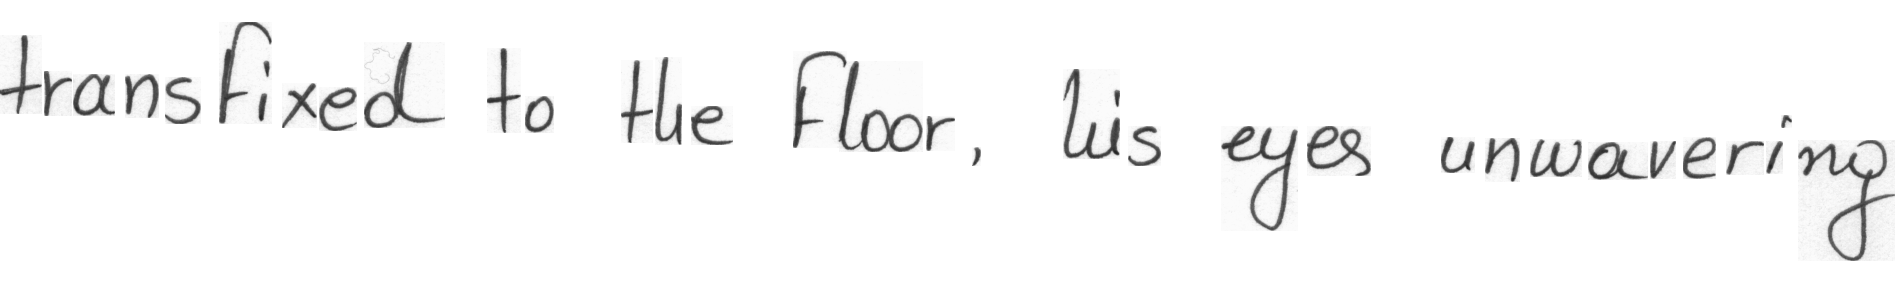 transfixed to the floor, his eyes unwavering